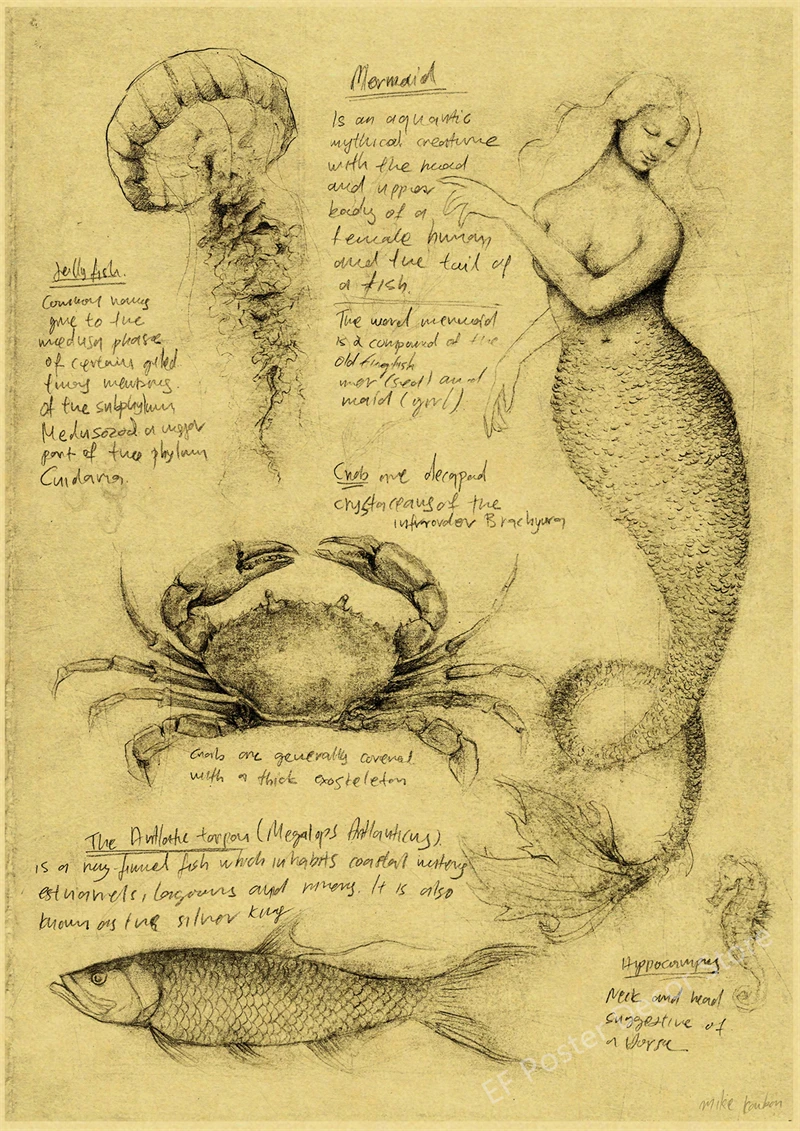 Mermaid
Is an aquantic
mythical creature
with the head
and upper
body of a
female human
and the tail of
a fish.
The word mermaid
is a compound of the
Old
mer (sea) and
maid (girl)
Jellyfish.
Common names
give to the
medusa phase
of certain
members
of the subphylum
Medusozoa a major
part of the phylum
Cnidaria.
Crab are decapod
crystaceans of the
infraorder Brachyura
Crab are generally covered
with a thick exoskeleton
The Atlantic tarpon (Megalops Atlanticus)
is a fish which inhabits coastal waters
lagouns and It is also
known as the silver king
Hippocampus
Neck and head
suggestive of
a Horse
EF Poster
mike